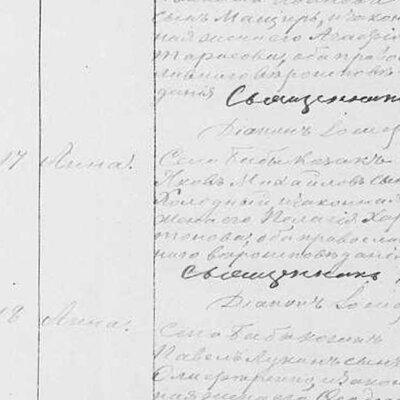 сынъ Мащиръ, и закон
ная жена его Агафія
Тарасова, оба право
славнаго вѣроисповѣ
данія
Священникъ
Діаконъ
17 Анна. Села Бабы козакъ
Яковъ Михайловъ сынъ
Холодный и законная
жена его Пелагія Хар
тонова, оба православ
наго вѣроисповѣданія
Священникъ
Діаконъ
18 Анна. Села Бабы козакъ
Павелъ Лукинъ сынъ
и закон
ная жена его Ѳеодос